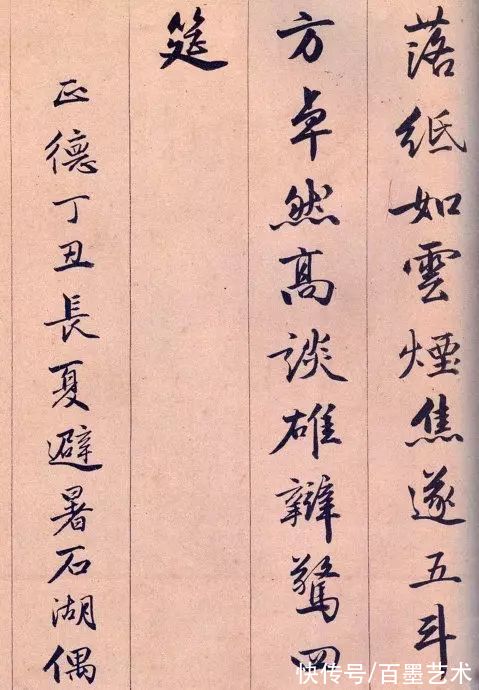 落纸如雲煙焦遂五斗
方卓然高談雄辯驚四
筵
正德丁丑長夏避暑石湖偶
快传号/百墨艺术